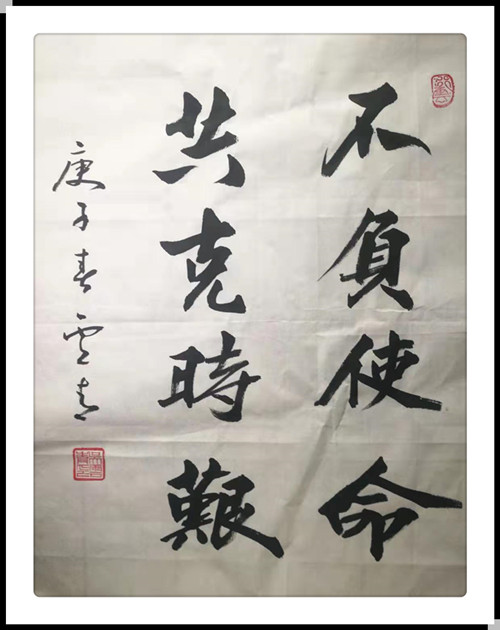 不負使命
共克時艱
庚子春雲青